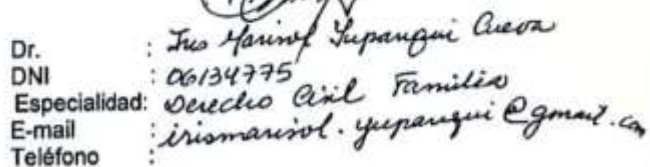 Dr. : Iris Marisol Yupangui Cueva
DNI : 06134775
Especialidad: Derecho Civil Familia
E-mail : irismarisol.yupangui@gmail.com
Teléfono :